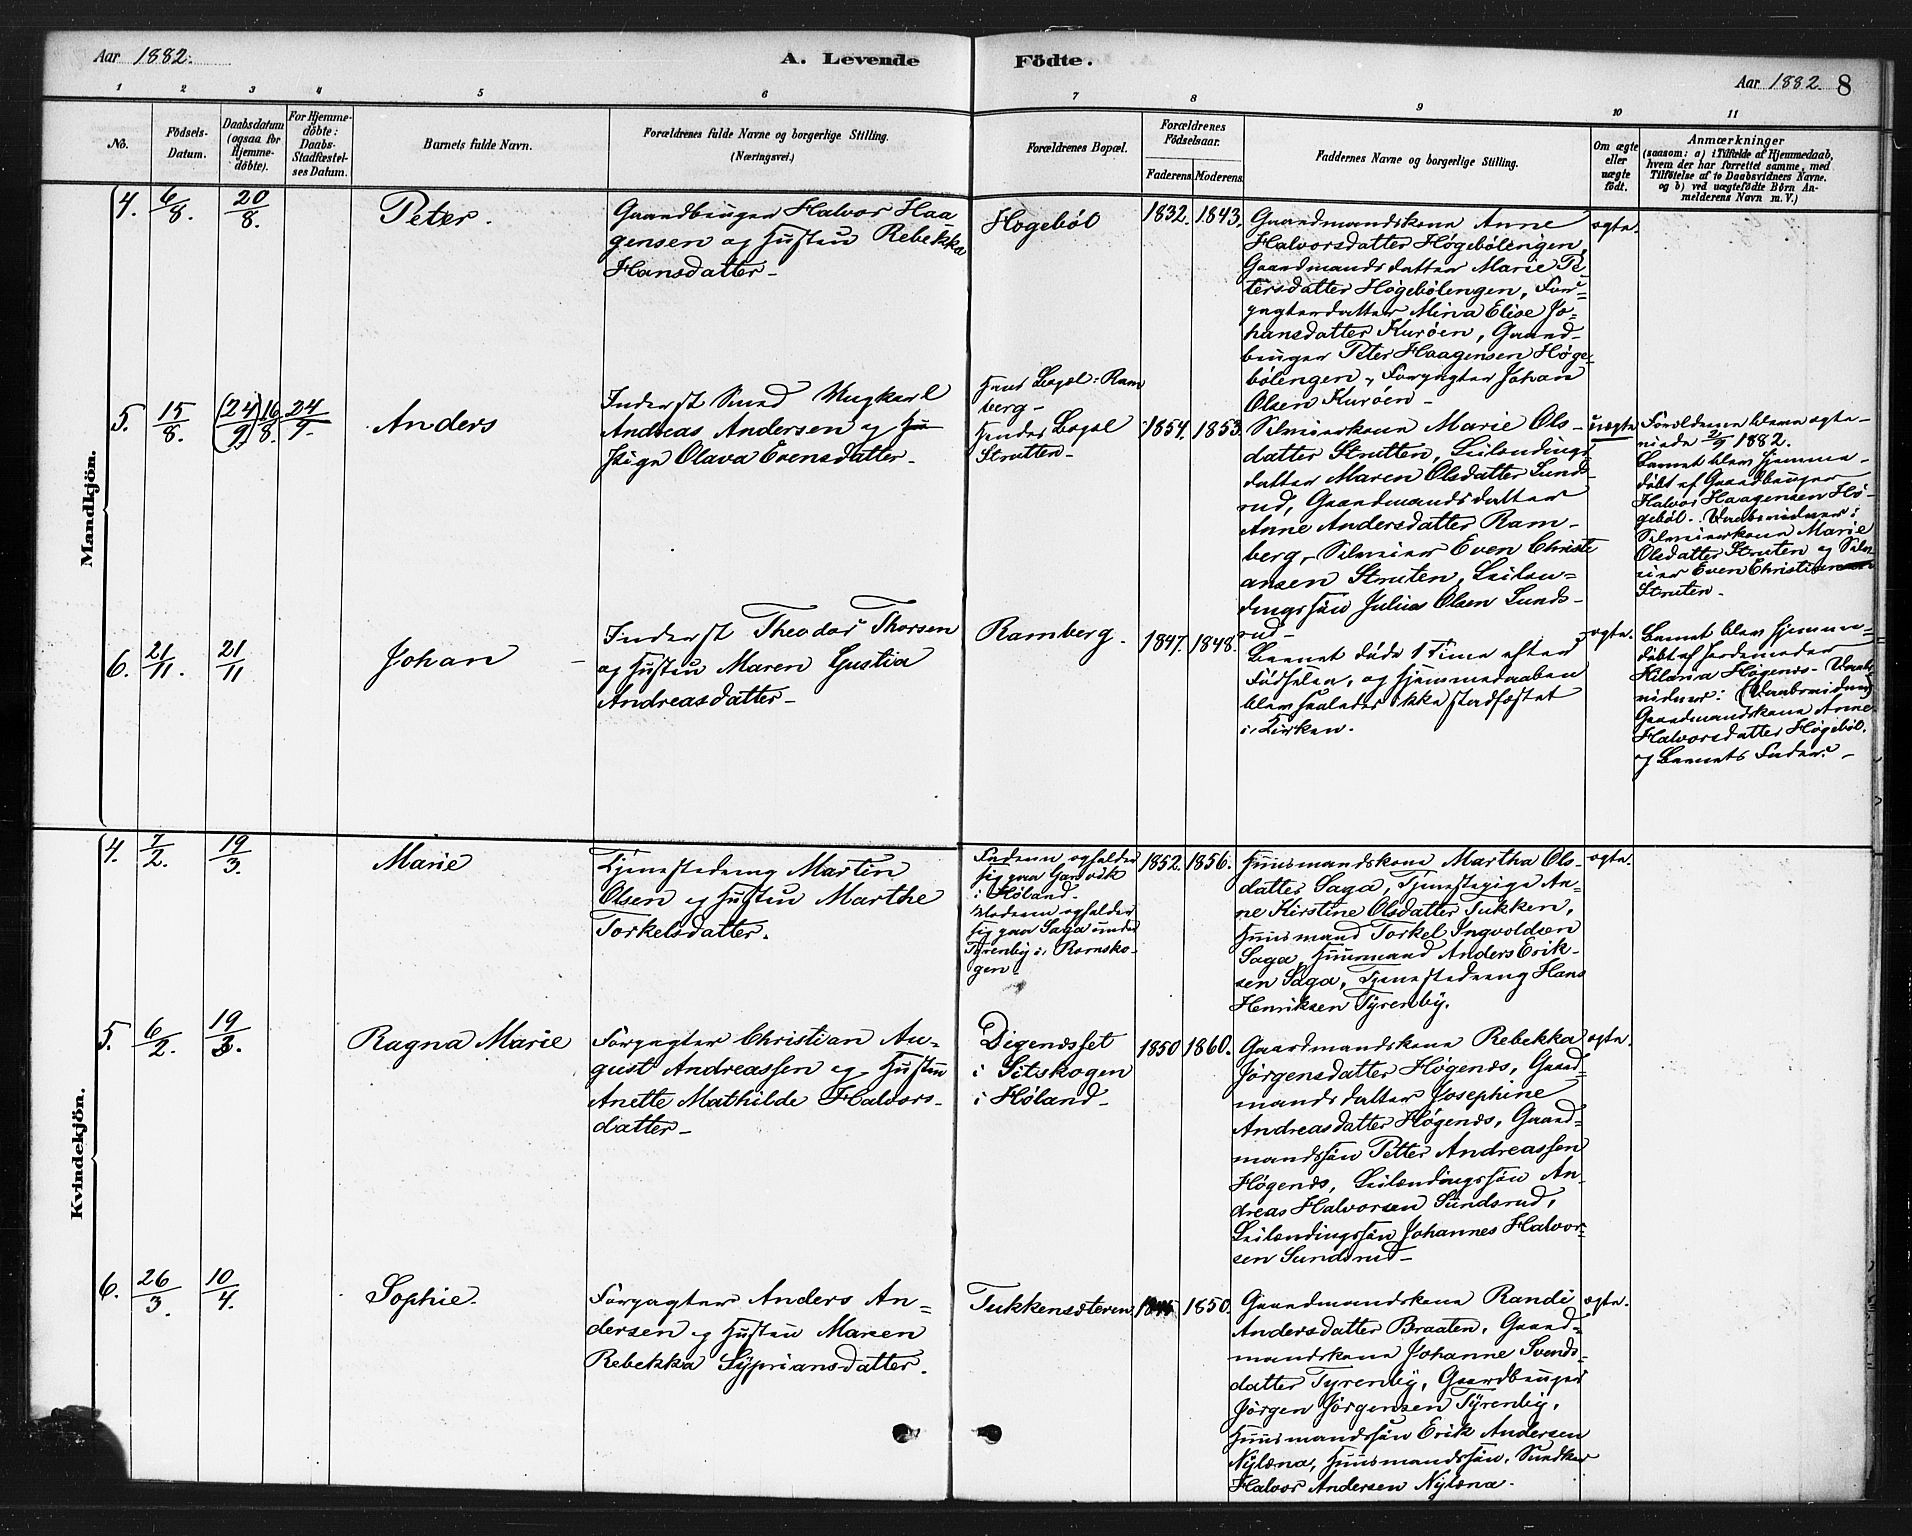 Aar 1882.
A. Levende
Födte.
Aar 1882.
8
1
2
3
4
5
6
7
8
9
10
11
No.
Födsels-
Datum.
Daabsdatum
(ogsaa for
Hjemme-
döbte).
For Hjemme-
döbte:
Daabs-
Stadfæstel-
ses Datum.
Barnets fulde Navn.
Forældrenes fulde Navne og borgerlige Stilling.
(Næringsvei.)
Forældrenes Bopæl.
Forældrenes
Födselsaar.
Faderens.
Moderens.
Faddernes Navne og borgerlige Stilling.
Om ægte
eller
uægte
födt.
Anmærkninger
(saasom: a) i Tilfælde af Hjemmedaab,
hvem der har forrettet samme, med
Tilföielse af to Daabsvidners Navne.
og b) ved uægtefödte Börn An-
melderens Navn m. V.)
Mandkjön.
4.
6/8.
20/8.
Peter.
Gaardbruger Halvor Haa
gensen og Hustru Rebekka
Hansdatter-
Høgeböl
1832.
1843.
Gaardmandskone Anne
Halvorsdatter Høgebölengen,
Gaardmandsdatter Marie Pe-
tersdatter Høgebölengen, For-
pagterdatter Mina Elise Jo-
hansdatter Kurøen, Gaard-
bruger Peter Haagensen Høge-
bölengen, Forpagter Johan
Olsen Kurøen-
ægte.
5.
15/8.
(24/9) 16/8.
24/9.
Anders
Inderst Smed Ungkarl
Andreas Andersen og Hu
Pige Olava Evensdatter-
Hans Bopæl: Ram
berg-
Hendes Bopæl
Strutten-
1854.
1853.
Selveierkone Marie Ols-
datter Strutten, Leilændings
datter Maren Olsdatter Sunds
rud, Gaardmandsdatter
Anne Andersdatter Ram-
berg, Selveier Even Christi
ansen Struten, Leilæn-
dingssön Julius Olsen Sunds-
rud-
uægte
Forældrene bleve ægte-
viede 1882.
Barnet blev hjemme-
döbt af Gaardbruger
Halvor Haagensen Hø-
geböl. Daabsvidner:
Selveierkone Marie
Olsdatter Struten og Selv-
eier Even Christiansen
Struten-
6.
21/11.
21/11
Johan
Inderst Theodor Thorsen
og Hustru Maren Gustia
Andreasdatter-
Ramberg.
1847.
1848.
Barnet döde 1 Time efter
Födselen, og Hjemmedaaben
blev saaledes ikke stadfæstet
i Kirken.
ægte.
Barnet blev hjemme-
döbt af Jordemoder
Kilana Høgenæs- Daabs
vidner: (Daabsvidner)
Gaardmandskone Anne
Halvorsdatter Høgeböl.
og Barnets Fader.-
Kvindekjön.
4.
7/2.
19/3.
Marie
Tjenestedreng Martin
Olsen og Hustru Marthe
Torkelsdatter.
Faderen opholder
sig paa
i Høland.
Moderen opholder
sig paa Saga under
Tyrenby i Romsko-
gen-
1852.
1856.
Huusmandskone Martha Ols-
datter Saga, Tjenestepige An-
ne Kirstine Olsdatter Tukken,
Huusmand Torkel Ingvoldsen
Saga, Huusmand Anders Erik-
sen Saga, Tjenestedreng Hans
Henriksen Tyrenby.
ægte.
5.
6/2.
19/3.
Ragna Marie
Forpagter Christian Au-
gust Andreassen og Hustru
Anette Mathilde Halvors-
datter-
Digenæsset
i Sitskogen
i Høland-
1850
1860.
Gaardmandskone Rebekka
Jörgensdatter Høgenæs, Gaard-
mandsdatter Josephine
Andreasdatter Høgenæs, Gaard-
mandssön Petter Andreassen
Høgenæs, Leilændingssön An-
dreas Halvorsen Sundsrud,
Leilændingssön Johannes Halvor-
sen Sundsrud-
ægte.
6.
26/3.
10/4.
Sophie.
Forpagter Anders An-
dersen og Hustru Maren
Rebekka Sypriansdatter.
Tukkensæteren
1850.
Gaardmandskone Randi
Andersdatter Braaten, Gaard-
mandskone Johanne Svends-
datter Tyrenby, Gaardbruger
Jörgen Jörgensen Tyrenby,
Huusmandssön Erik Andersen
Nylæna, Huusmandssön, Snedker
Halvor Andersen Nylæna.
ægte.